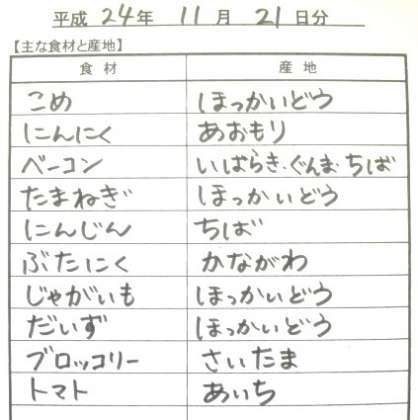 平成 24年 11月 21日分
【主な食材と産地】
食材 産地
こめ ほっかいどう
にんにく あおもり
ベーコン いばらき・ぐんま・ちば
たまねぎ ほっかいどう
にんじん ちば
ぶたにく かながわ
じゃがいも ほっかいどう
だいず ほっかいどう
ブロッコリー さいたま
トマト あいち